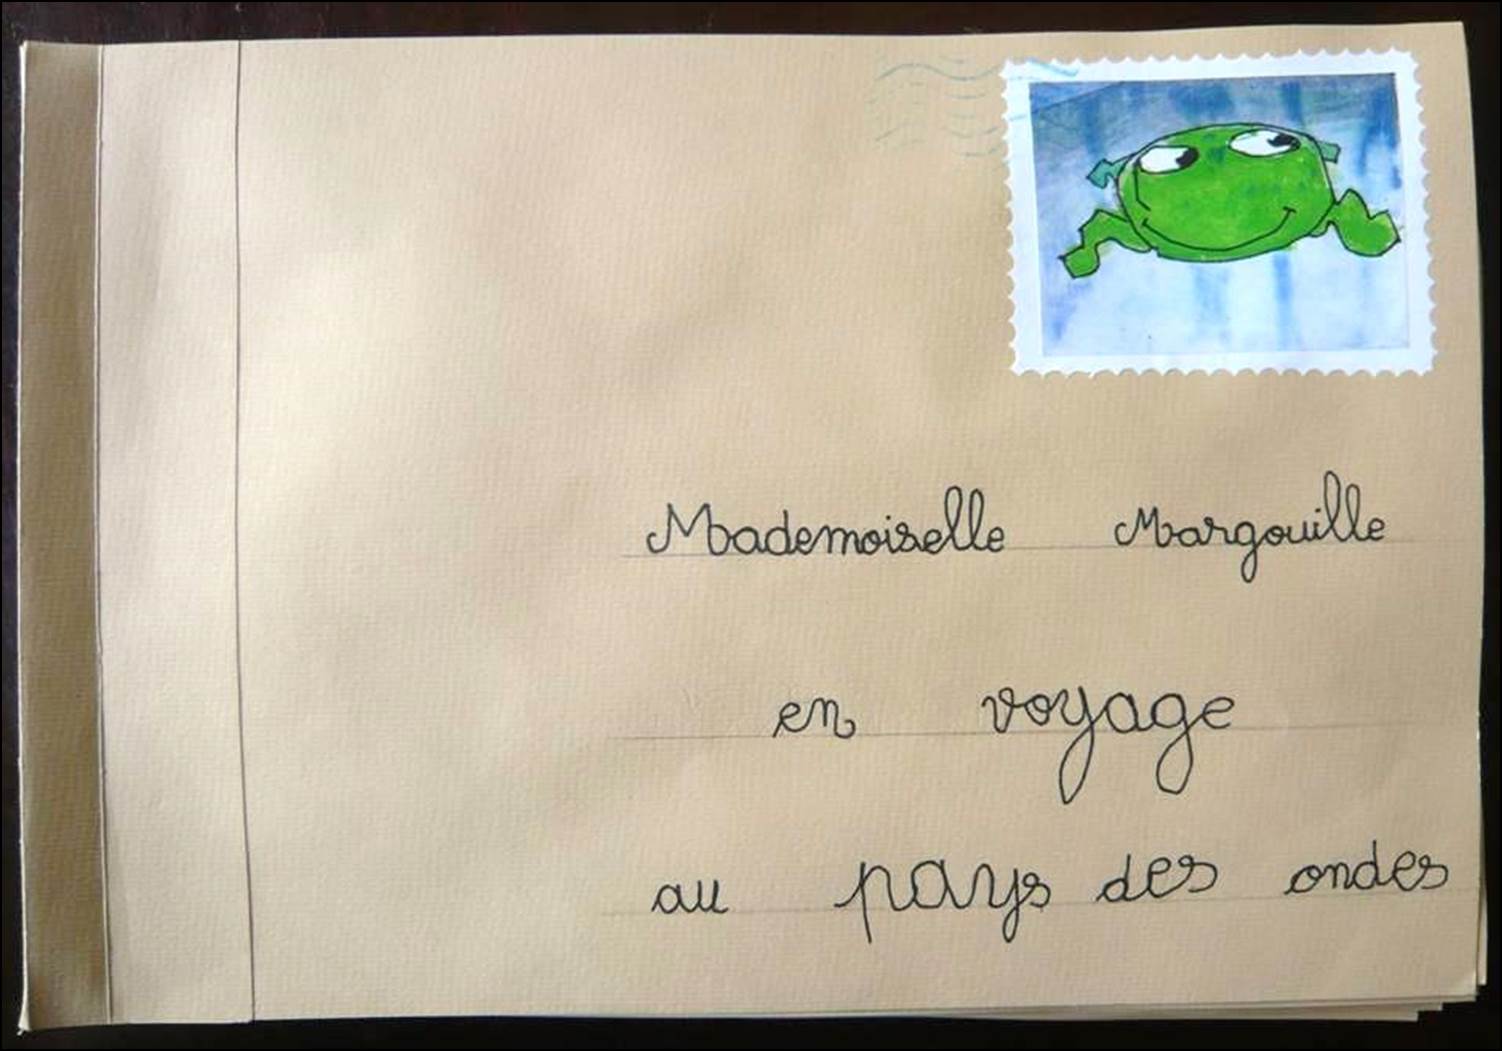 Mademoiselle Margouille
en voyage
au pays des ondes